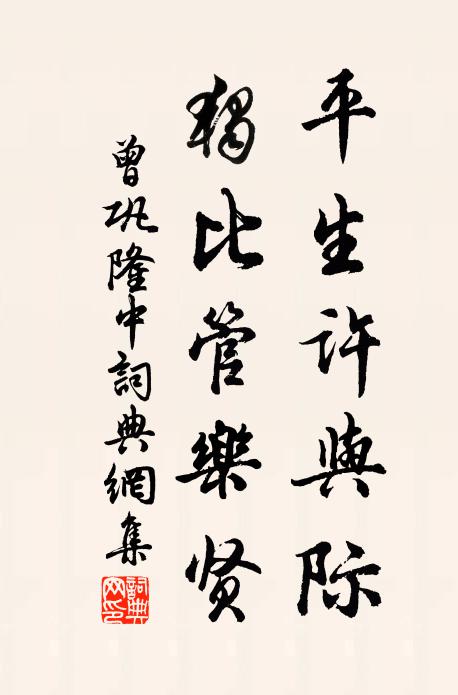 平生许與际
獨比管樂贤
曾巩隆中詞典網集
詞典網印